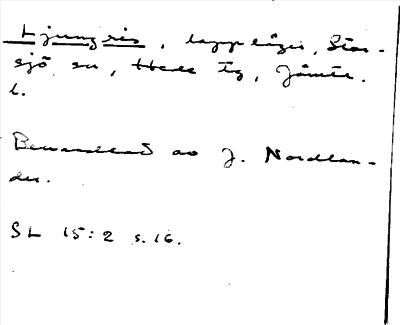 Ljungris, lappläger, Stor-
sjö sn, Hede tg, Jämtl.
l.
Benandlad av J. Nordlan-
der.
SL 15:2 s. 16.